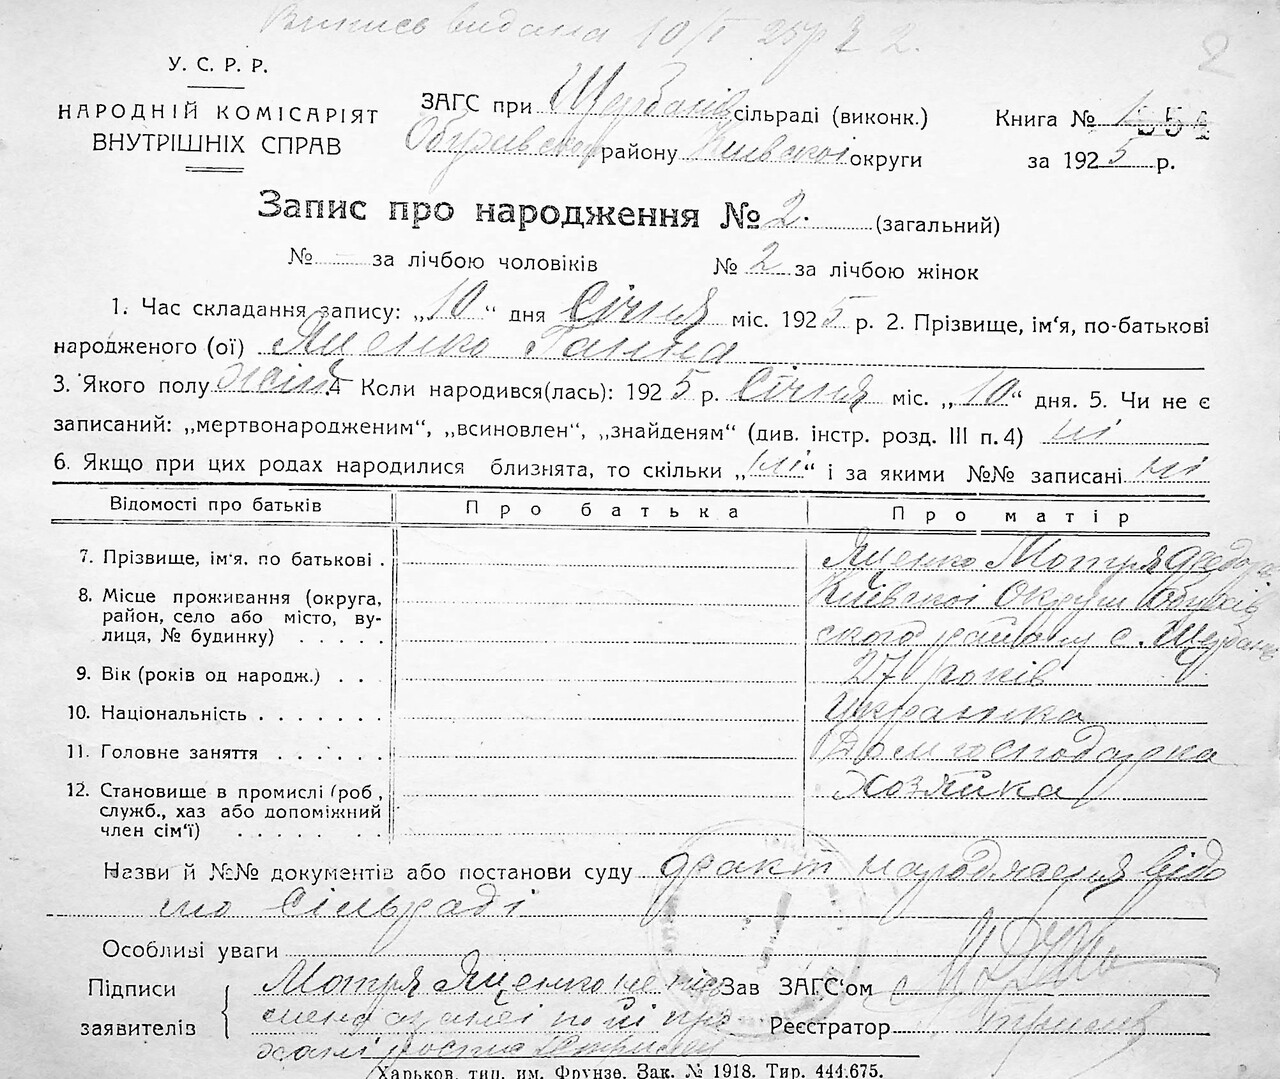 Випись видана 10/I 25 р № 2.
2
У. С. Р. Р.
НАРОДНІЙ КОМІСАРІЯТ
ВНУТРІШНІХ СПРАВ
ЗАГС при Щербанів сільраді (виконк.)
району Київської округи
Книга № 1 554
за 1925 р.
Запис про народження № 2. (загальний)
№ — за лічбою чоловіків № 2 за лічбою жінок
1. Час складання запису: „10“ дня Січня міс. 1925 р. 2. Прізвище, ім'я, по-батькові
народженого (ої) Яценко Ганна
3. Якого полу жіно 4 Коли народився(лась): 1925 р. Січня міс. „10“ дня. 5. Чи не є
записаний: „мертвонародженим“, „всиновлен“, „знайденям“ (див. інстр. розд. III п. 4) ні
6. Якщо при цих родах народилися близнята, то скільки „ні“ і за якими №№ записані ні
Відомості про батьків Про батька Про матір
7. Прізвище, ім'я. по батькові . Яценко Мотря Федор
8. Місце проживання (округа, Київської Округи
район, село або місто, ву-
лиця, № будинку) . . . . . ского району с. Щербан
9. Вік (років од народж.) . . 27 років
10. Національність . . . . . . . Українка
11. Головне заняття . . . . . . Домгосподарка
12. Становище в промислі (роб., Хозяйка
служб., хаз або допоміжний
член сім'ї) . . . . . . .
Назви й №№ документів або постанови суду факт народження відо
мо Сільраді
Особливі уваги
Підписи
заявителів
Мотря Яценко не піс
Зав ЗАГС'ом
Реєстратор
Харьков, тип. им. Фрунзе. Зак. № 1918. Тир. 444.675.